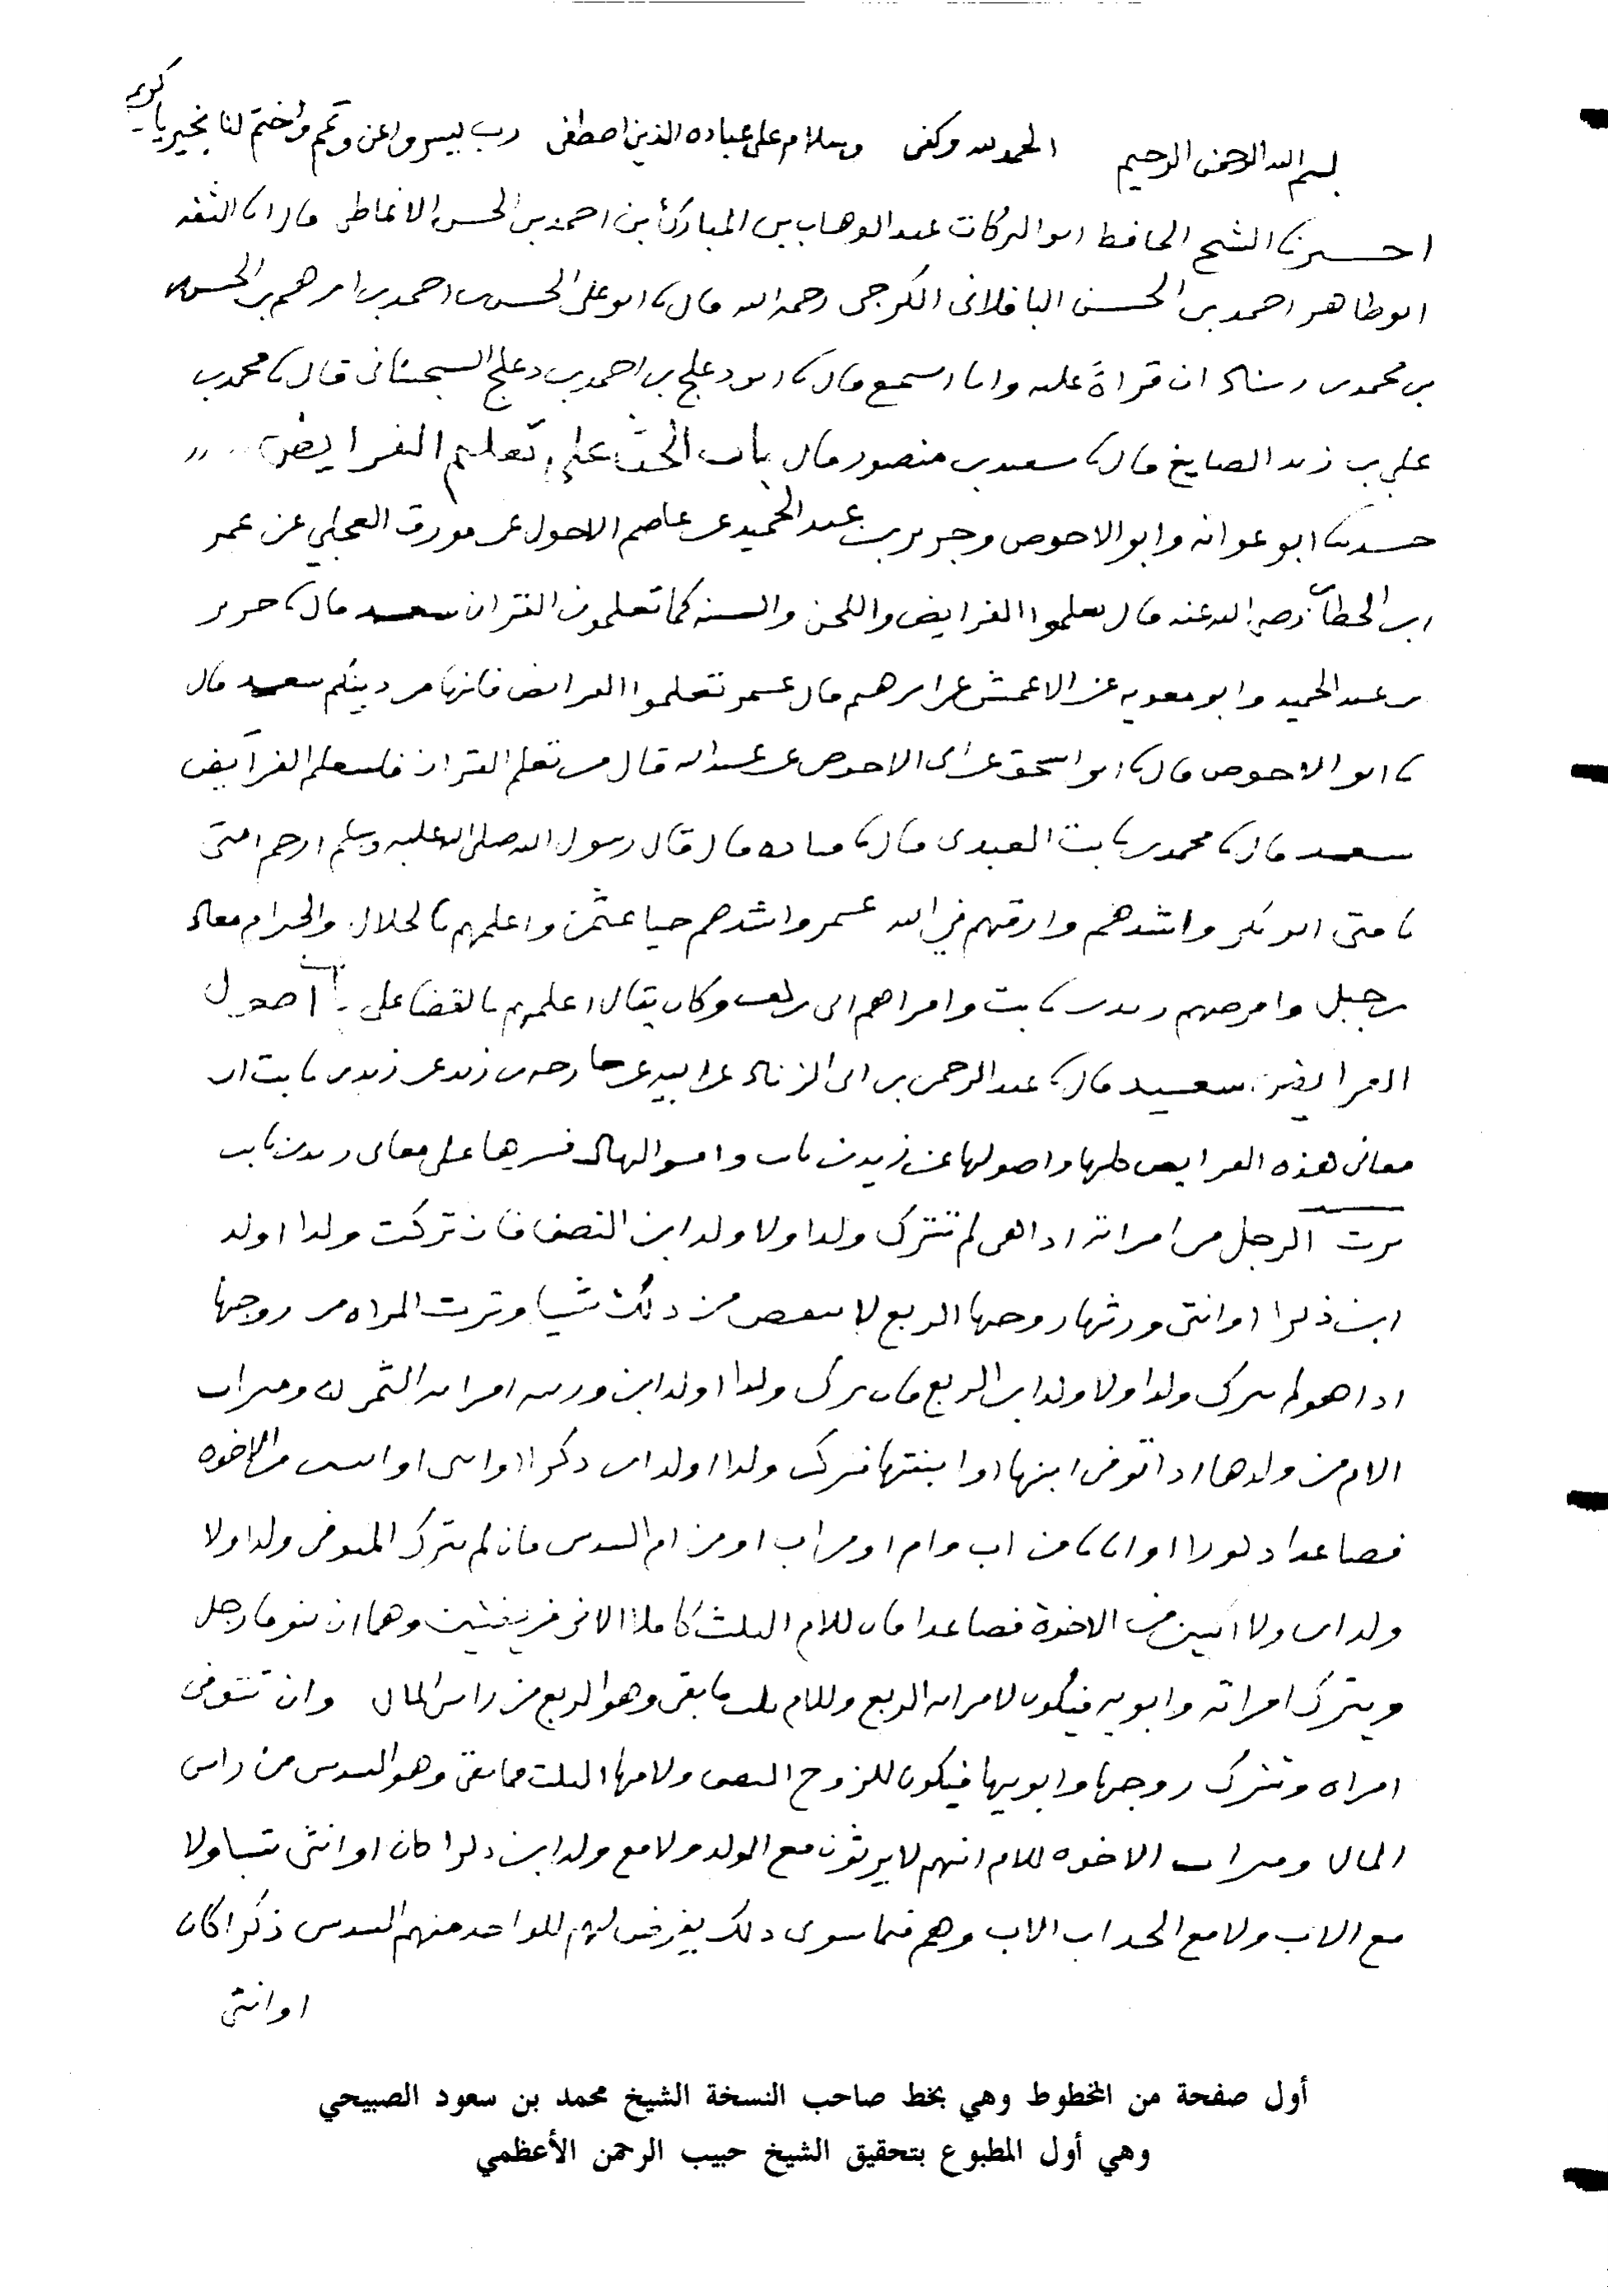 بسم الله الرحمن الرحيم الحمد لله وكفى وسلام على عباده الذين اصطفى رب يسر واعن وتمم واختم لنا بخير يا كريم
اخبرنا الشيخ الحافظ ابو البركات عبد الوهاب بن المبارك بن احمد بن الحسن الانماطي قال انا الثقه
ابو طاهر احمد بن الحسن الباقلاني الكرجي رحمه الله قال انا ابو علي الحسن بن احمد بن ابرهيم بن الحسن
بن محمد بن شاذان قراة عليه وانا اسمع قال انا دعلج بن احمد بن دعلج السجستاني قال نا محمد بن
علي بن زيد الصايغ قال نا سعيد بن منصور قال باب الحث على تعليم الفرايض
حدثنا ابو عوانه وابو الاحوص وجرير بن عبد الحميد عن عاصم الاحول عن مورق العجلي عن عمر
ابن الخطاب رضي الله عنه قال تعلموا الفرايض واللحن والسنه كما تعلمون القران سعيد قال نا جرير
بن عبد الحميد وابو معويه عن الاعمش عن ابرهيم قال عمر تعلموا الفرايض فانها من دينكم سعيد قال
نا ابو الاحوص قال نا ابو اسحق عن ابي الاحوص عن عبد الله قال من تعلم القران فليتعلم الفرآيض
سعيد قال نا محمد بن ثابت العبدي قال نا قتاده قال قال رسول الله صلى الله عليه وسلم ارحم امتي
بامتي ابو بكر واشدهم وارقهم في الله عمر واشدهم حيا عثمن واعلمهم بالحلال والحرام معاذ
بن جبل وافرضهم زيد بن ثابت واقراهم ابي بن كعب وكان يقال اعلمهم بالقضا علي باب اصول
الفرايض سعيد قال نا عبد الرحمن بن ابي الزناد عن ابيه عن خارجه بن زيد عن زيد بن ثابت ان
معاني هذه الفرايض كلها واصولها عن زيد بن ثابت وابو الزناد فسرها على معاني زيد بن ثابت
يرث الرجل من امراته اذا هي لم تترك ولدا ولا ولد ابن النصف فان تركت ولدا او ولد
ابن ذكرا او انثى ورثها زوجها الربع لا ينقص من ذلك شيا وترث المراه من زوجها
اذا هو لم يترك ولدا ولا ولد ابن الربع فان ترك ولدا او ولد ابن ورثته امراته الثمن وميراث
الام من ولدها اذا توفى ابنها او ابنتها فترك ولدا او ولد ابن ذكرا او انثى او اثنين من الاخوه
فصاعدا ذكورا او اناثا من اب وام او من اب او من ام السدس فان لم يترك المتوفى ولدا ولا
ولد ابن ولا اثنين من الاخوة فصاعدا فان للام الثلث كاملا الا في فريضتين وهما ان يتوفا رجل
ويترك امراته وابويه فيكون لامراته الربع وللام ثلث ما بقى وهو الربع من راس المال وان تتوفى
امراه وتترك زوجها وابويها فيكون للزوج النصف ولامها الثلث مما بقى وهو السدس من راس
المال وميراث الاخوه للام انهم لا يرثون مع الولد ولا مع ولد ابن ذكرا كان او انثى شيا ولا
مع الاب ولا مع الجد اب الاب وهم فيما سوى ذلك يفرض لهم للواحد منهم السدس ذكرا كان
او انثى
أول صفحة من المخطوط وهي بخط صاحب النسخة الشيخ محمد بن سعود الصبيحي
وهي أول المطبوع بتحقيق الشيخ حبيب الرحمن الأعظمي